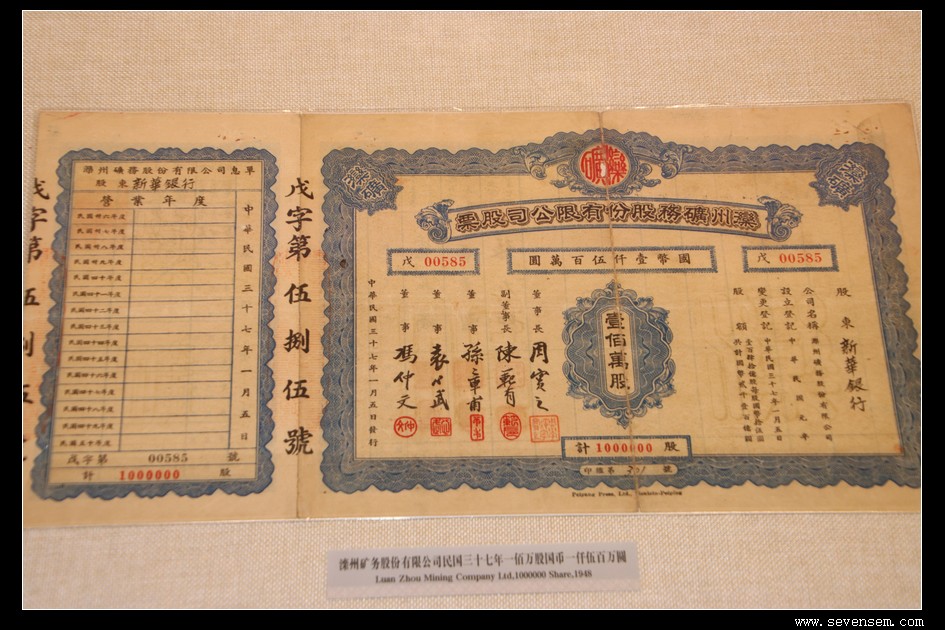 灤礦
灤州礦務股份有限公司股票
戊 00585
國幣壹仟伍百萬圓
戊 00585
股東 新華銀行
公司名稱 灤州礦務股份有限公司
設立登記 中華民國元年
變更登記 中華民國三十七年一月五日
股額
壹佰萬股
董事長 周實之
副董事長 陳
董事 孫章甫
董事 袁
董事 馮仲文
中華民國三十七年一月五日發行
計 1000000 股
印雜第 號
Peiyang Press, Ltd., Tientsin-Peiping
戊字第伍捌伍號
灤州礦務股份有限公司息單
股東 新華銀行
營業年度
民國卅六年度
民國卅七年度
民國卅八年度
民國卅九年度
民國四十年度
民國四十一年度
民國四十二年度
民國四十三年度
民國四十四年度
民國四十五年度
民國四十六年度
民國四十七年度
民國四十八年度
民國四十九年度
民國五十年度
中華民國三十七年一月五日
戊字第 00585 號
計 1000000 股
戊字第
滦州矿务股份有限公司民国三十七年一佰万股国币一仟伍百万圓
Luan Zhou Mining Company Ltd,1000000 Share,1948
www.sevensem.com